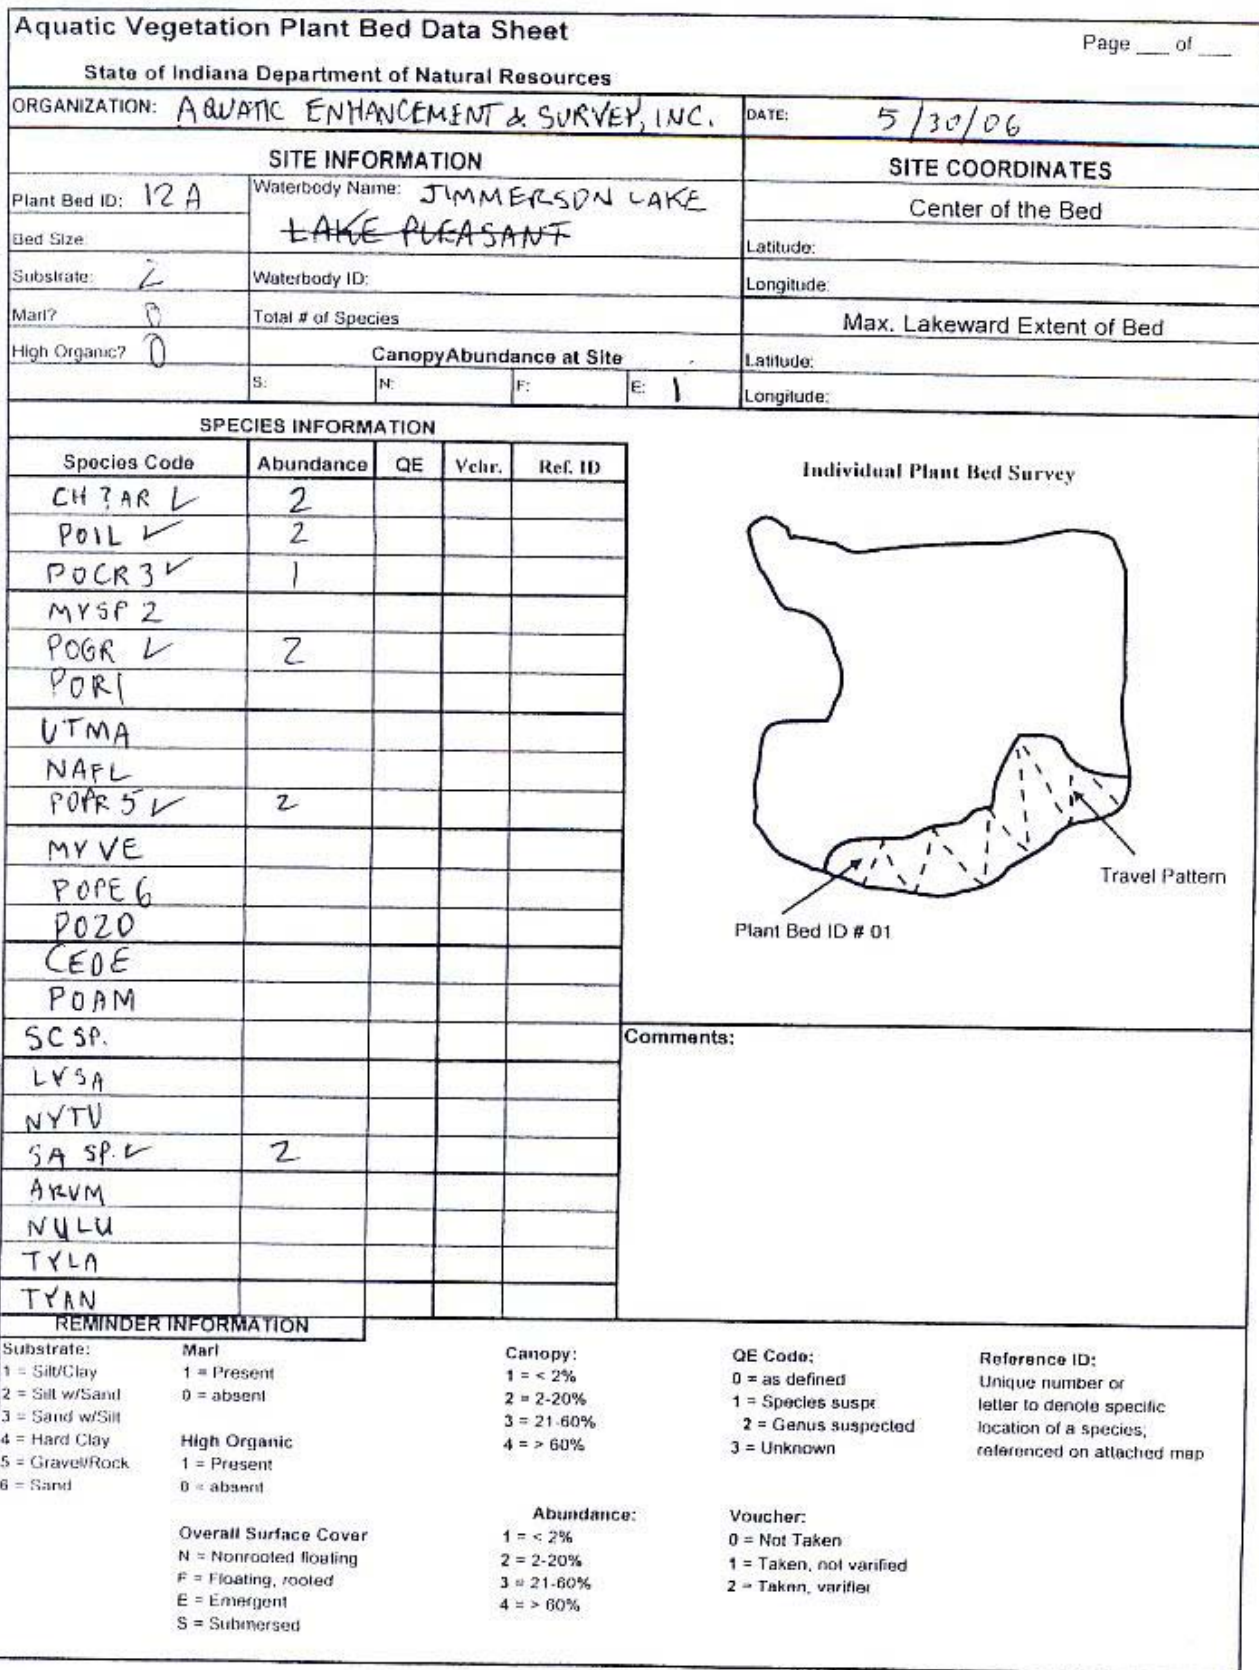 Aquatic Vegetation Plant Bed Data Sheet
Page ___ of ___
State of Indiana Department of Natural Resources
ORGANIZATION: AQUATIC ENHANCEMENT & SURVEY, INC.
DATE: 5/30/06
SITE INFORMATION
SITE COORDINATES
Plant Bed ID: 12 A
Waterbody Name: JIMMERSON LAKE
LAKE PLEASANT
Center of the Bed
Bed Size:
Latitude:
Substrate: 2
Waterbody ID:
Longitude:
Marl? 0
Total # of Species
Max. Lakeward Extent of Bed
High Organic? 0
CanopyAbundance at Site
Latitude:
S: N: F: E: 1
Longitude:
SPECIES INFORMATION
Species Code Abundance QE Vchr. Ref. ID
CH?AR ✓ 2
POIL ✓ 2
POCR3 ✓ 1
MYSP2
POGR ✓ 2
PORI
UTMA
NAFL
POPR5 ✓ 2
MYVE
POPE6
POZO
CEDE
POAM
SC SP.
LYSA
NYTU
SA SP. ✓ 2
ARUM
NULU
TYLA
TYAN
Individual Plant Bed Survey
Travel Pattern
Plant Bed ID # 01
Comments:
REMINDER INFORMATION
Substrate:
1 = Silt/Clay
2 = Silt w/Sand
3 = Sand w/Silt
4 = Hard Clay
5 = Gravel/Rock
6 = Sand
Marl
1 = Present
0 = absent
High Organic
1 = Present
0 = absent
Overall Surface Cover
N = Nonrooted floating
F = Floating, rooted
E = Emergent
S = Submersed
Canopy:
1 = < 2%
2 = 2-20%
3 = 21-60%
4 = > 60%
Abundance:
1 = < 2%
2 = 2-20%
3 = 21-60%
4 = > 60%
QE Code:
0 = as defined
1 = Species suspe
2 = Genus suspected
3 = Unknown
Voucher:
0 = Not Taken
1 = Taken, not varified
2 = Taken, varifier
Reference ID:
Unique number or
letter to denote specific
location of a species;
referenced on attached map